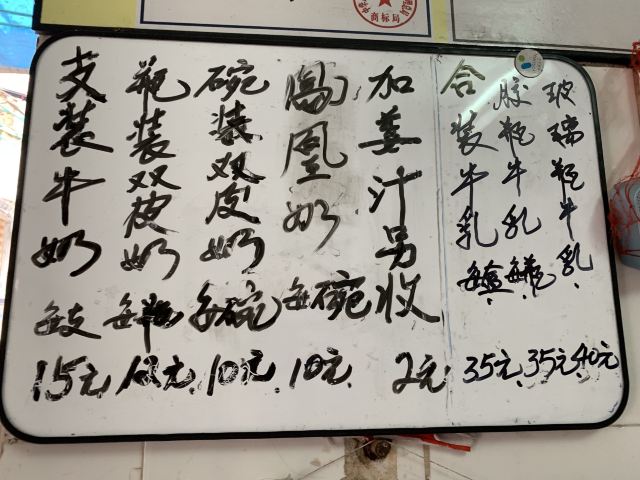 支装牛奶 每支 15元
瓶装双皮奶 每瓶 12元
碗装双皮奶 每碗 10元
鳯凰奶 每碗 10元
加姜汁另收 2元
合装牛乳 每盒 35元
胶瓶牛乳 每瓶 35元
玻璃瓶牛乳 40元
商标局